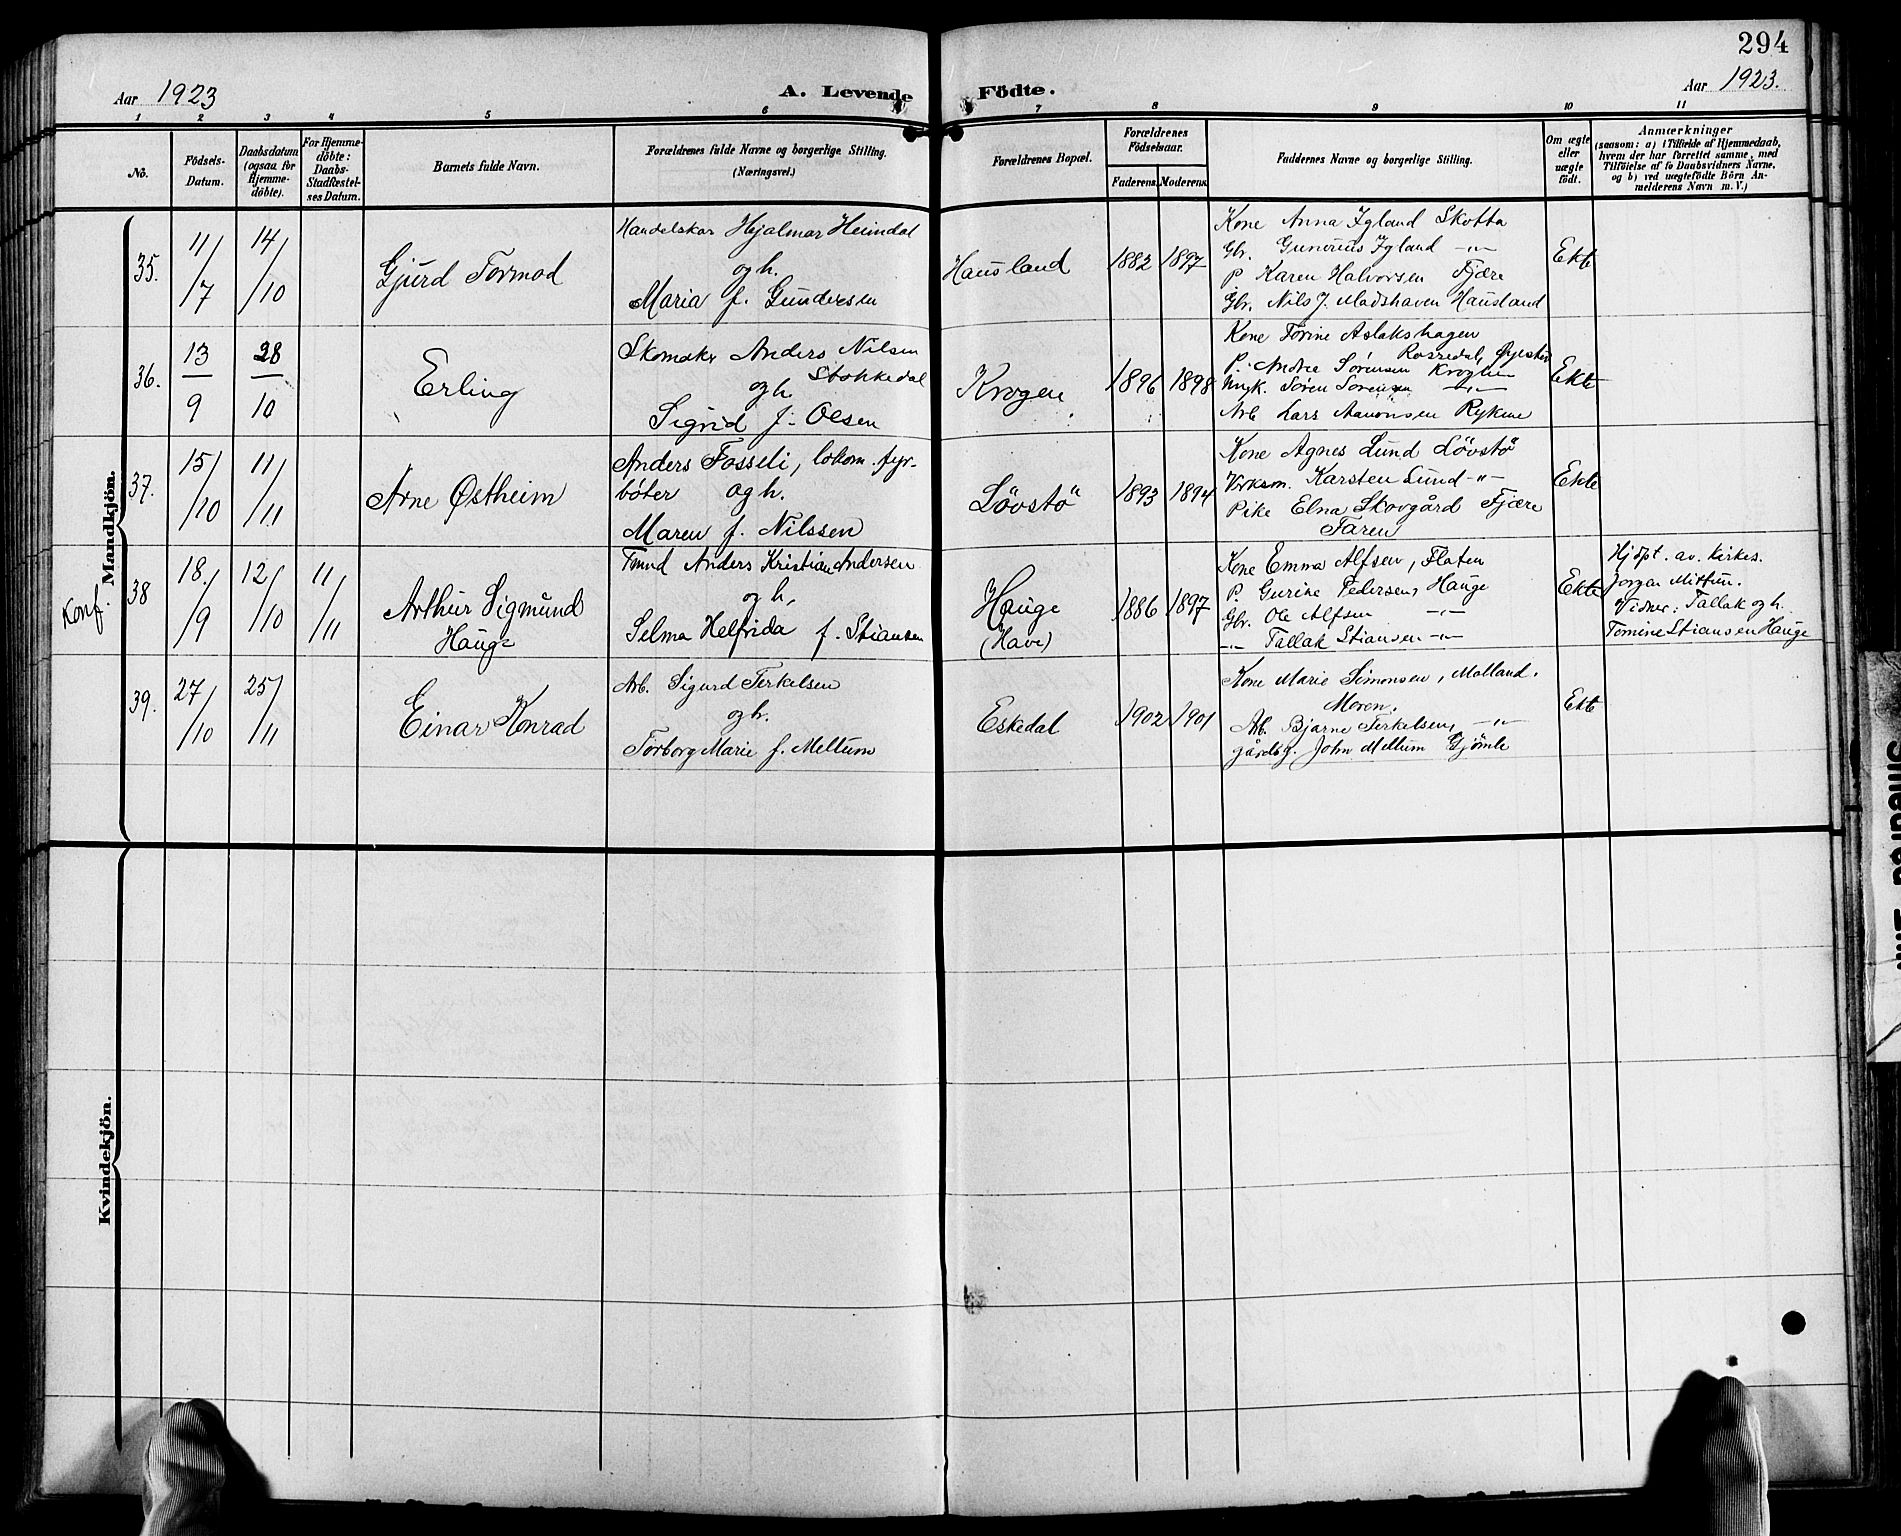 294
Aar 1923
A. Levende Födte.
Aar 1923.
1 2 3 4 5 6 7 8 9 10 11
No.
Födsels-
Datum.
Daabsdatum
(ogsaa for
Hjemme-
döbte).
For Hjemme-
döbte:
Daabs-
Stadfæstel-
ses Datum.
Barnets fulde Navn.
Forældrenes fulde Navne og borgerlige Stilling.
(Næringsvei.)
Forældrenes Bopæl.
Forældrenes
Födselsaar.
Faderens. Moderens.
Faddernes Navne og borgerlige Stilling.
Om ægte
eller
uægte
födt.
Anmærkninger
(saasom: a) i Tilfælde af Hjemmedaab,
hvem der har forrettet samme, med
Tilföielse af to Daabsvidners Navne,
og b) ved uægtefödte Börn An-
melderens Navn m. V.)
Mandkjön.
35.
11/7
14/10
Gjurd Tormod
Handelskar Hjalmar Heimdal
og h.
Maria f. Gundersen
Hausland
1882 1897
Kone Anna Igland Skotta
Gbr. Gunerius Igland -"-
P. Karen Halvorsen Fjære
Gbr. Nils J. Madshaven Hausland
Ekte
36.
13/9
28/10
Erling
Skomaker Anders Nilsen
Stokkedal
og h.
Sigrid f. Olsen
Krogen
1896 1898
Kone Torine Aslakshagen
Rossedal, Øyestad
P. Andre Sørensen Krogen
Ungk. Søren Sørensen -"-
Arb. Lars Aanonsen Rykene
Ekte
37.
15/10
11/11
Arne Østheim
Anders Fosseli, lokom. fyr-
bøter og h.
Maren f. Nilssen
Løvstø
1893 1894
Kone Agnes Lund Løvstø
Verksm. Karsten Lund -"-
Pike Elna Skovgård Fjære
Faren
Ekte
Konf.
38
18./9
12/10
11/11
Arthur Sigmund
Hauge
Tmnd Anders Kristian Andersen
og h.
Selma Helfrida f. Stiansen
Hauge
(Have)
1886 1897
Kone Emma Alfsen, Flaten
P. Gurine Pedersen, Hauge
Gbr. Ole Alfsen -"-
-"- Tallak Stiansen -"-
Ekte
Hjdpt. av kirkes.
Jorgen Mittun.
Vidner: Tallak og h.
Tomine Stiansen Hauge
39.
27/10
25/11
Einar Konrad
Arb. Sigurd Terkelsen
og h.
Torborg Marie f. Mellum
Eskedal
1902 1901
Kone Marie Simonsen, Molland.
Moren.
Arb. Bjarne Terkelsen, -"-
gårdbg. John Mellum Gjømle
Ekte
Kvindekjön.